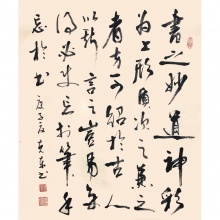 書之妙道神彩
为上形質次之兼之
者方可紹於古人
以斯言之豈易多
得必使心忘於筆手
忘於书 庚子夏 书